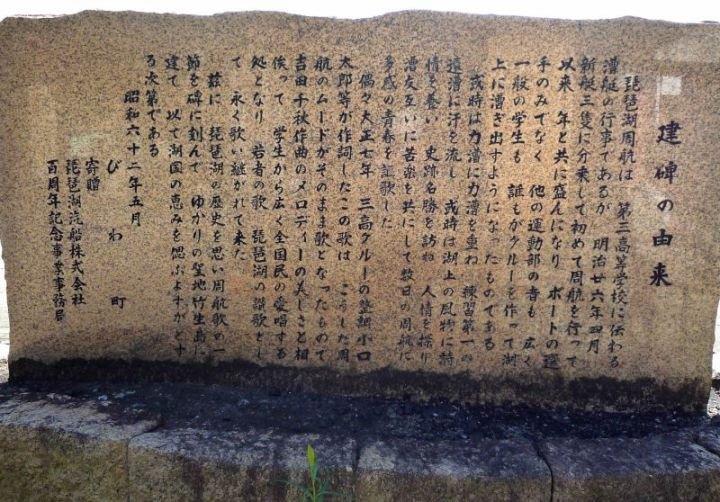 建碑の由来
琵琶湖周航は 第三高等学校に伝わる
漕艇の行事であるが 明治廿六年四月
新艇三隻に分乗して初めて周航を行って
以来 年と共に盛んになり ボートの選
手のみでなく 他の運動部の者も 広く
一般の学生も 誰もがクルーを作って湖
上に漕ぎ出すようになったものである
或時は力漕に力漕を重ね 練習第一の
遠漕に汗を流し 或時は湖上の風物に詩
情を養い 史跡名勝を訪ね 人情を探り
漕友互いに苦楽を共にして数日の周航に
多感の青春を謳歌した
偶々大正七年 三高クルーの整調小口
太郎等が作詞したこの歌は こうした周
航のムードがそのまま歌となったもので
吉田千秋作曲のメロディーの美しさと相
俟って 学生から広く全国民の愛唱する
処となり 若者の歌 琵琶湖の讃歌とし
て 永く歌い継がれて来た
茲に 琵琶湖の歴史を思い周航歌の一
節を碑に刻んで ゆかりの聖地竹生島に
建て 以て湖国の恵みを偲ぶよすがとす
る次第である
昭和六十二年五月
寄贈 びわ町
琵琶湖汽船株式会社
百周年記念事業事務局